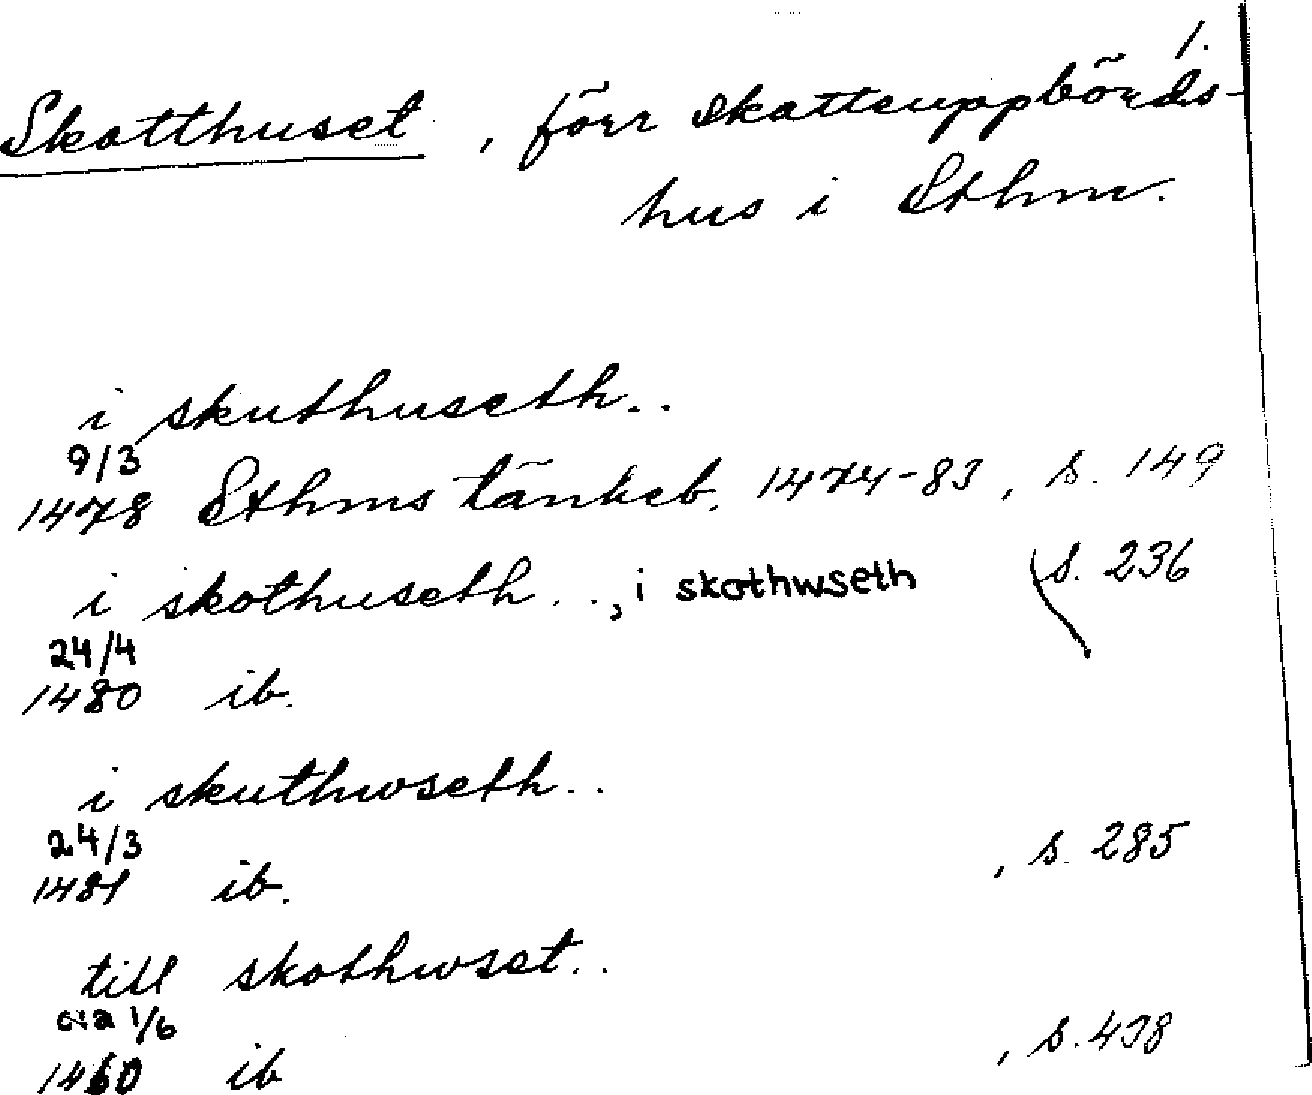 1.
Skotthuset, förr skatteuppbörds-
hus i Sthm.
i skuthuseth..
9/3
1478 Sthms tänkeb. 1474-83, s. 149
i skothuseth..., i skothwseth s. 236
24/4
1480 ib.
i skuthwseth..
24/3
1481 ib. , s. 285
till skothwset..
1/6
ib , s. 438